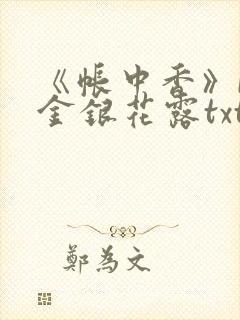 《帐中香》
金银花露txt
郑为文